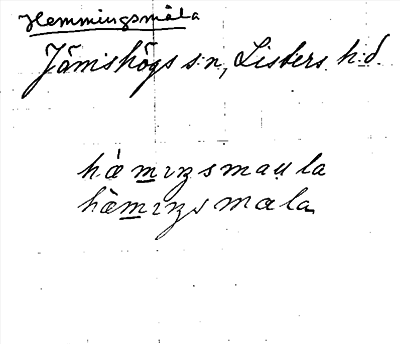 Hemmingsmåla
Jämshögs s:n, Listers h:d.
hæ̀mıŋsmau̯la
hæ̀mıŋsmɑla